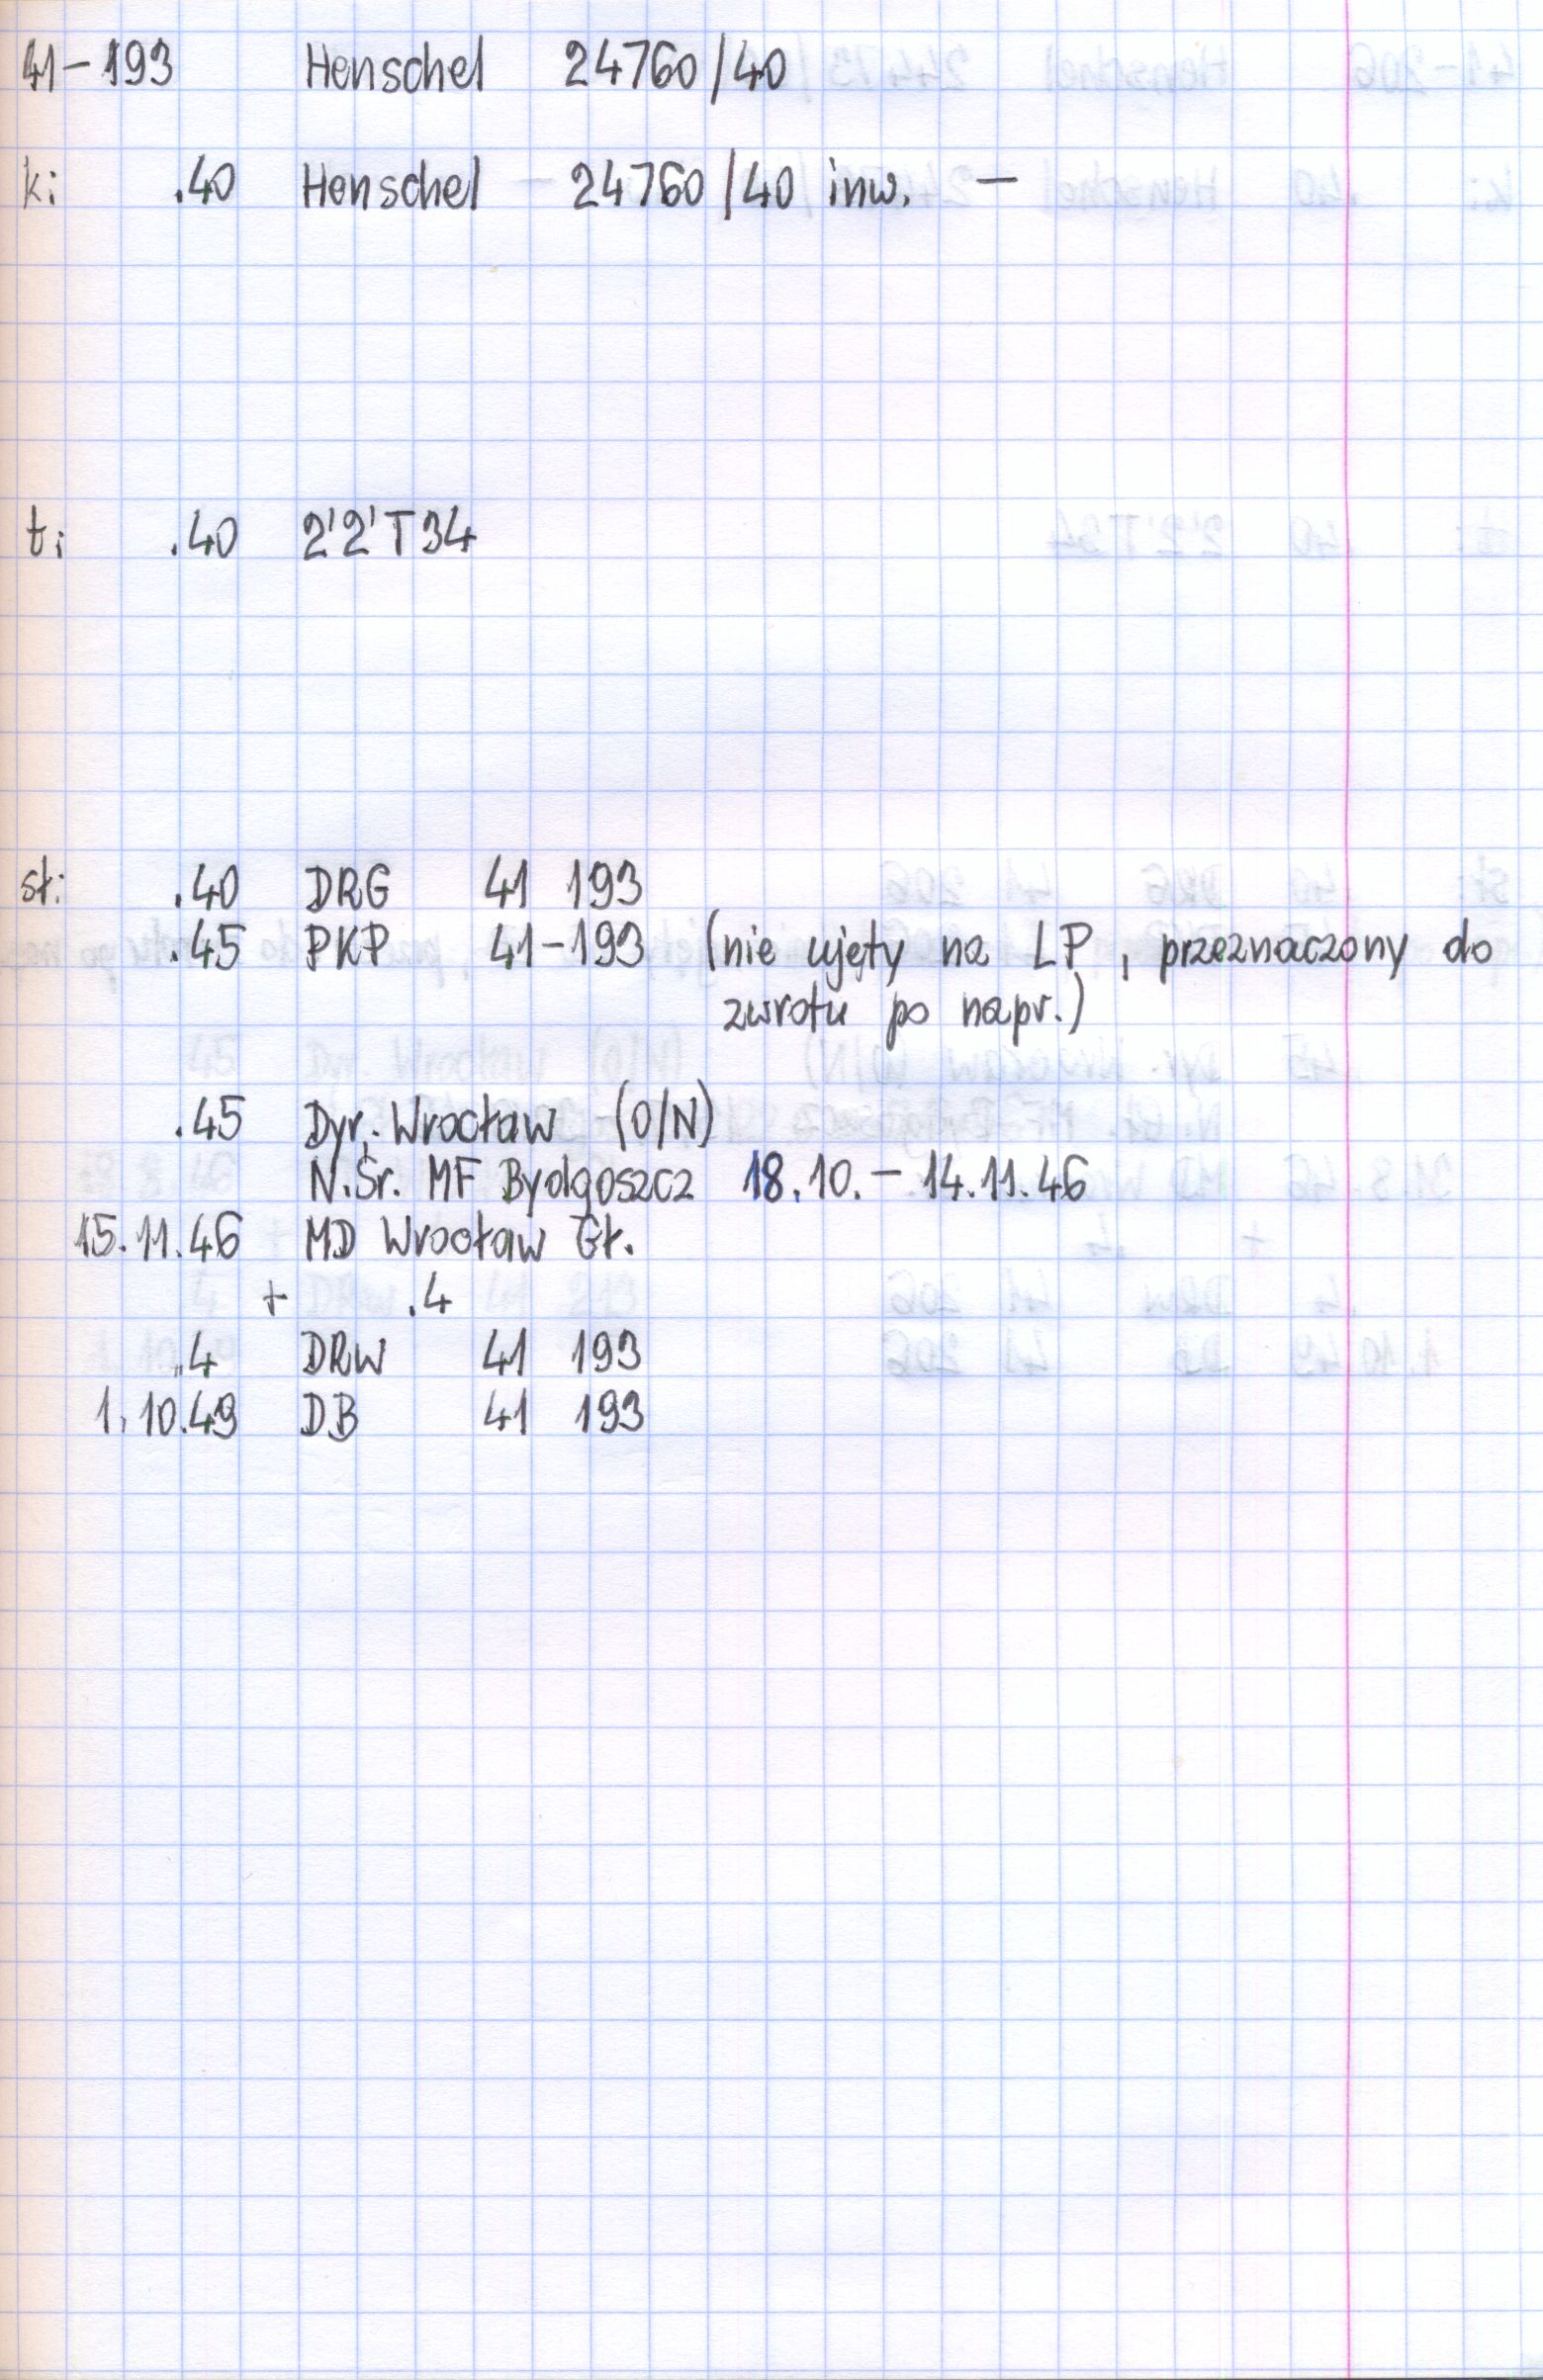 41-193 Henschel 24760/40
k: .40 Henschel 24760/40 inw. —
t: .40 2'2'T34
st: .40 DRG 41 193
.45 PKP 41-193 (nie ujęty na LP, przeznaczony do
zwrotu po napr.)
.45 Dyr. Wrocław (O/N)
N.Śr. MF Bydgoszcz 18.10.-14.11.46
15.11.46 MD Wrocław Gł.
+ .4
.4 DRw 41 193
1.10.49 DB 41 193